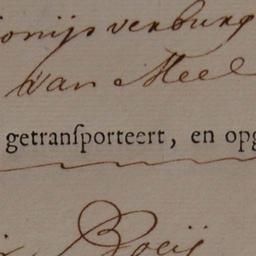 onijs verburg
van Meel
getranſporteert, en opg
Boeij